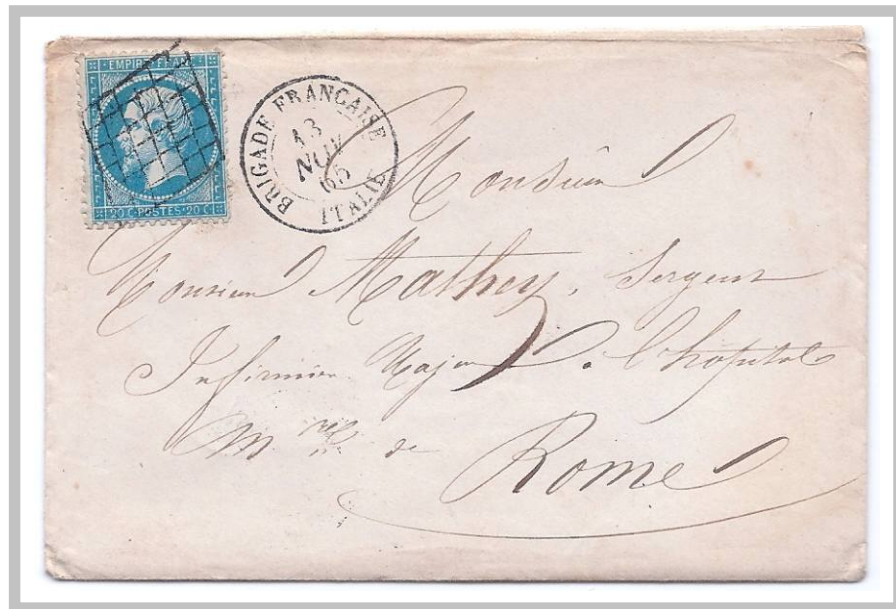 EMPIRE FRANC
20 C POSTES 20 C
BRIGADE FRANÇAISE
13
NOV
65
ITALIE
Monsieur
Monsieur Mathey, Sergent
Infirmier Major. l'hopital
M re de
Rome